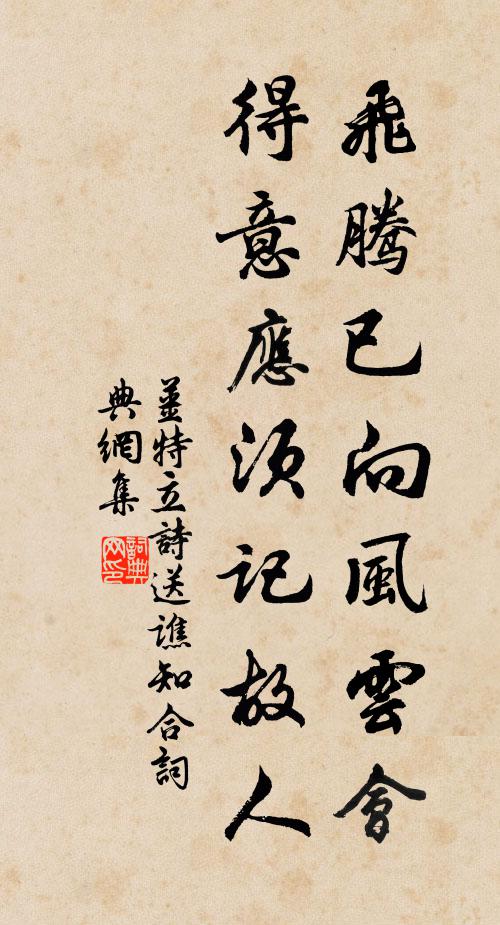 飛騰已向風雲會
得意應須記故人
姜特立詩送譙知合詞
典網集
詞典
网印